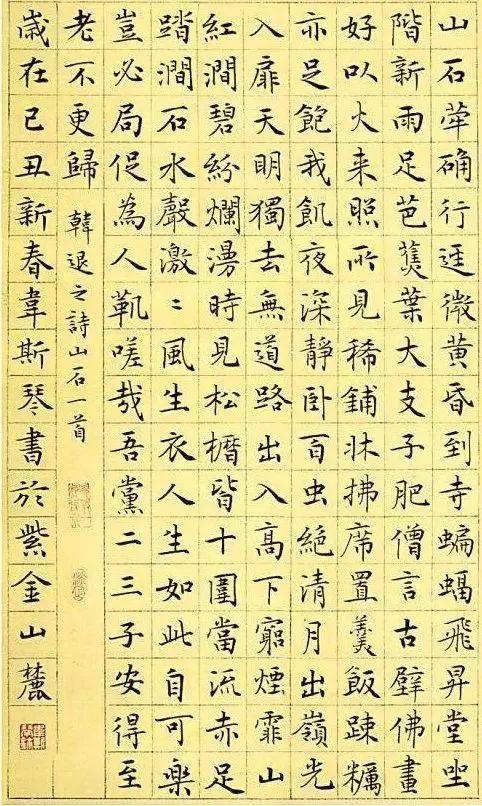 山石荦确行逕微黄昏到寺蝙蝠飛昇堂坐
階新雨足芭蕉葉大支子肥僧言古壁佛畫
好以火来照所見稀鋪牀拂席置羹飯踈糲
亦足飽我飢夜深靜卧百虫絶清月出嶺光
入扉天明獨去無道路出入高下窮煙霏山
紅澗碧紛爛漫時見松櫪皆十圍當流赤足
踏澗石水聲激〻風生衣人生如此自可樂
豈必局促為人鞿嗟哉吾黨二三子安得至
老不更歸 韓退之詩山石一首
歲在己丑新春韋斯琴書於紫金山麓